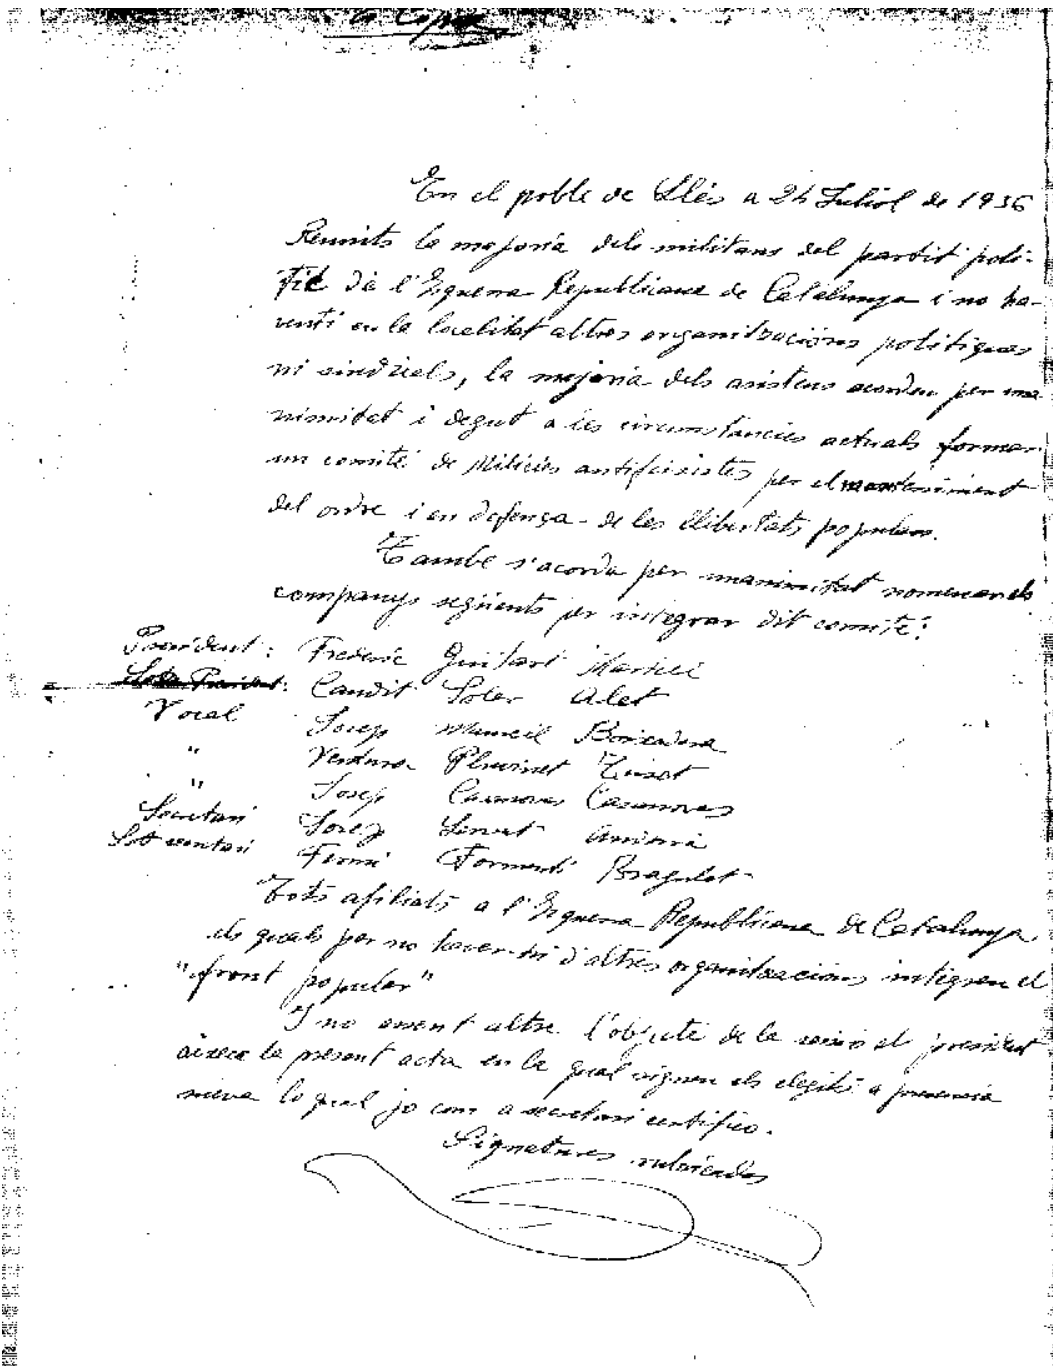 Copia
En el poble de Llés a 24 Juliol de 1936
Reunits la majoria dels militans del partit polí-
tic de l'Esquerra Republicana de Catalunya i no ha-
venti en la localitat altres organitzacions polítiques
ni sindicals, la majoria dels asistens acorden per una
nimitat i degut a les circumstancies actuals formar
un comité de Milicies antifeixistes per el manteniment
del ordre i en defensa de les llibertats populars.
També s'acorda per unanimitat nomenar els
companys següents per integrar dit comité:
President: Frederic Guitart
Sots President: Candit Soler Alet
Vocal Josep
" Ventura
" Josep Casanovas Casanovas
Secretari Josep
Sot secretari Fermí Bragulat
Tots afiliats a l'Esquerra Republicana de Catalunya
els quals per no haver-hi d'altres organitzacions integren el
"front popular"
I no essent altre l'objecte de la reunió el president
aixeca la present acta en la qual signen els elegits a presencia
meva lo qual jo com a secretari certifico.
Signatures rubricades